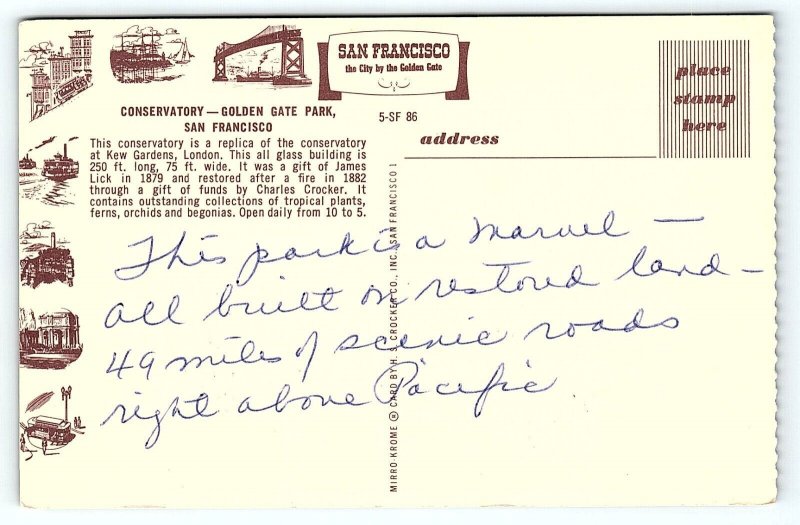 SAN FRANCISCO
the City by the Golden Gate
place
stamp
here
CONSERVATORY — GOLDEN GATE PARK,
SAN FRANCISCO
5-SF 86
address
This conservatory is a replica of the conservatory
at Kew Gardens, London. This all glass building is
250 ft. long, 75 ft. wide. It was a gift of James
Lick in 1879 and restored after a fire in 1882
through a gift of funds by Charles Crocker. It
contains outstanding collections of tropical plants,
ferns, orchids and begonias. Open daily from 10 to 5.
This park is a marvel —
all built on restored land —
49 miles of scenic roads
right above Pacific.
MIRRO-KROME ® CARD BY H. S. CROCKER CO., INC., SAN FRANCISCO 1